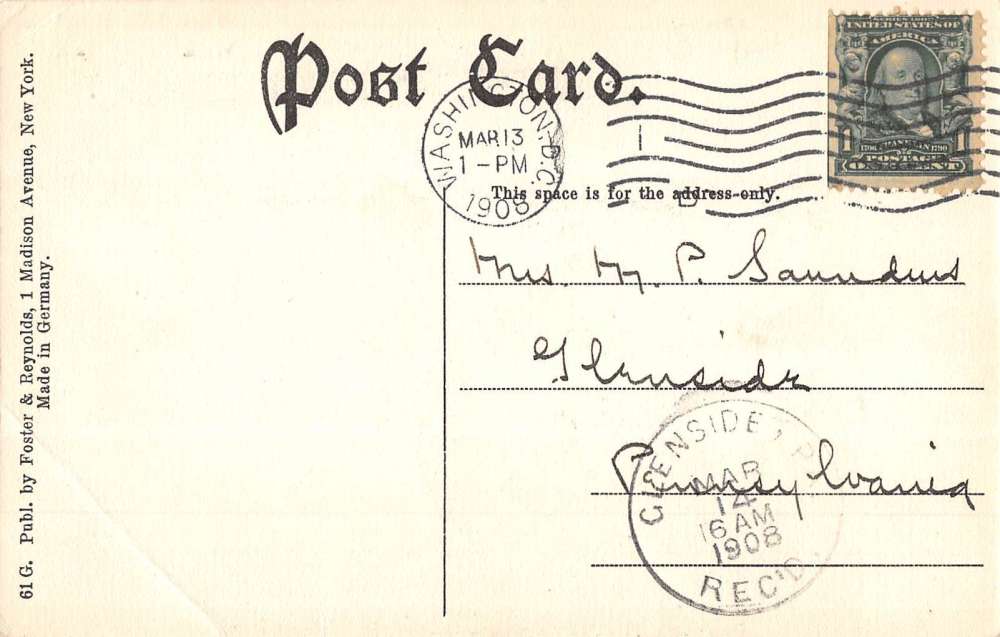 Post Card.
WASHINGTON, D.C.
MAR 13
1-PM
1908
1
D
SERIES 1902
UNITED STATES OF
AMERICA
1
1
FRANKLIN
1706
1790
POSTAGE
ONE CENT
This space is for the address only.
Mrs. M. P. Saunders
Glenside
Pennsylvania
GLENSIDE, PA.
MAR
14
6 AM
1908
REC'D
61 G. Publ. by Foster & Reynolds, 1 Madison Avenue, New York.
Made in Germany.